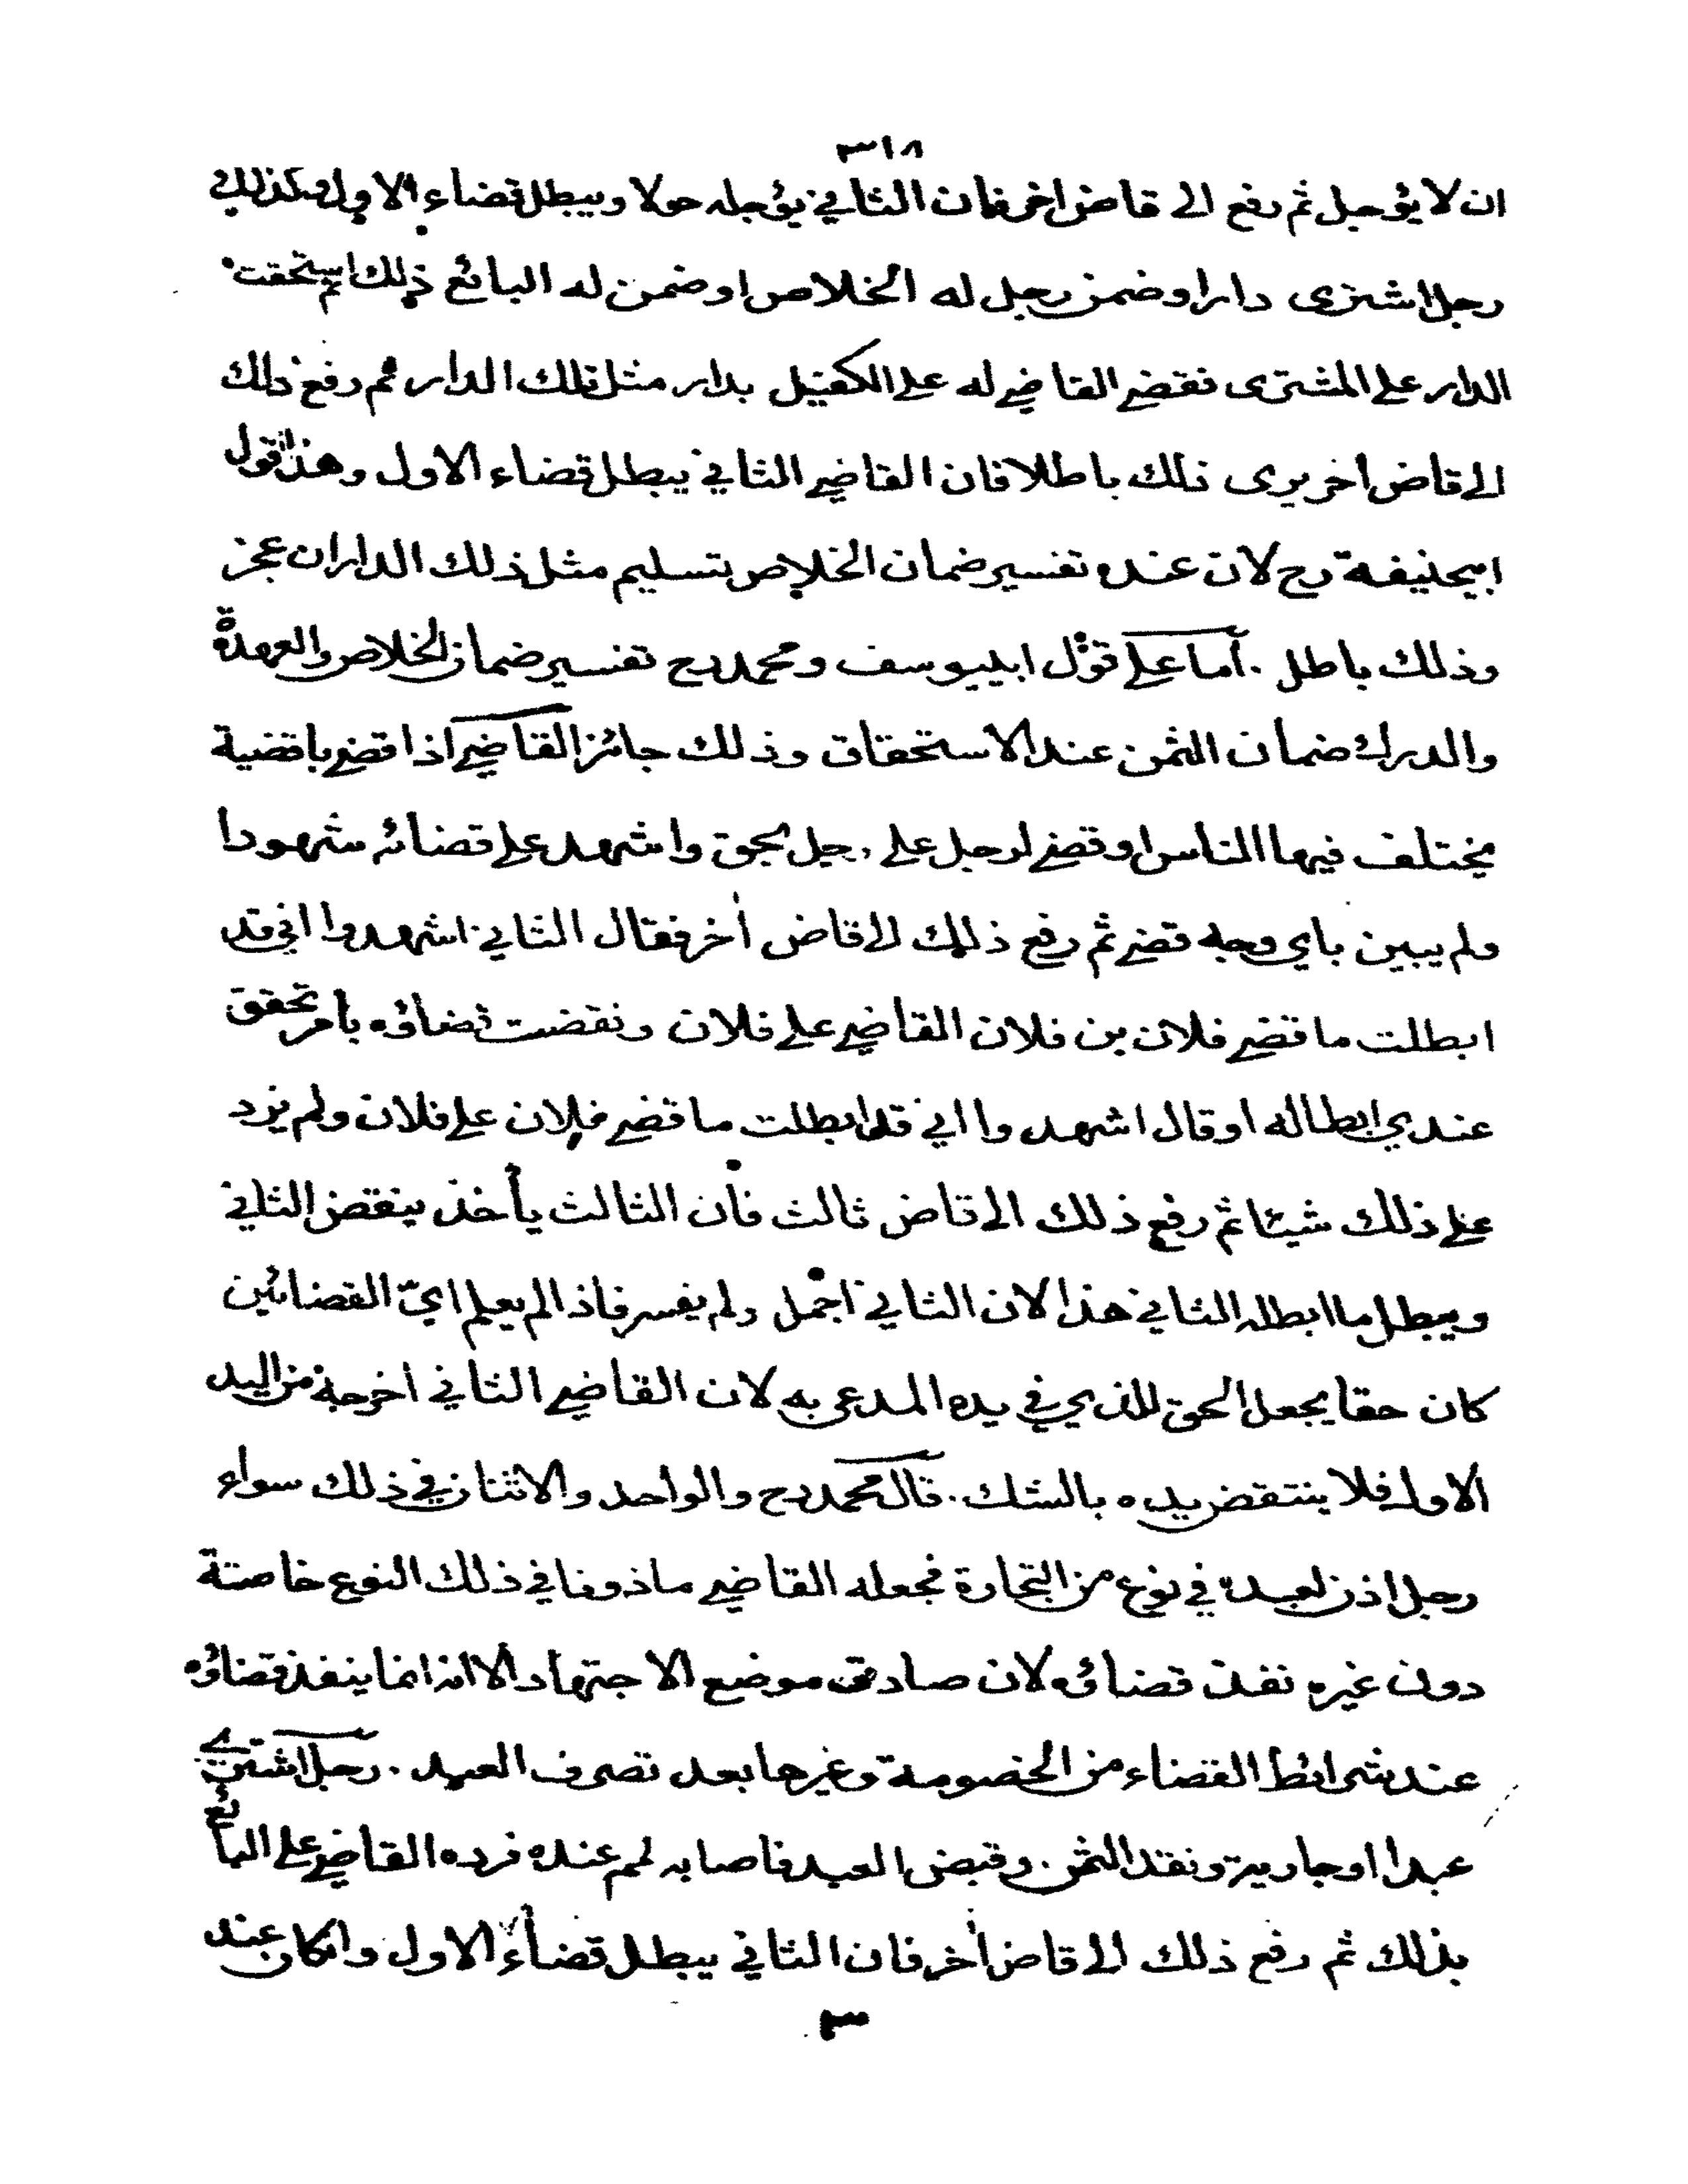 ٣١٨
ان لا يؤجل ثم رفع الى قاض اخر فان الثاني يؤجله حولا ويبطل قضاء الاول وكذلك
رجل اشترى دارا وضمن رجل له الخلاص او ضمن له البائع ذلك ثم استحقت
الدار على المشترى فقضى القاضي له على الكفيل بدار مثل تلك الدار ثم رفع ذلك
الى قاض اخر يرى ذلك باطلا فان القاضي الثاني يبطل قضاء الاول وهذا قول
ابيحنيفة رح لان عنده تفسير ضمان الخلاص بتسليم مثل ذلك الدار ان عجز
وذلك باطل . أما على قول ابييوسف ومحمد رح تفسير ضمان الخلاص والعهدة
والدرك ضمان الثمن عند الاستحقاق وذلك جائز القاضي اذا قضى باقضية
يختلف فيها الناس او قضى لرجل على رجل بحق واشهد على قضائه شهودا
ولم يبين باي وجه قضى ثم رفع ذلك الى قاض أخر فقال الثاني اشهدوا اني قد
ابطلت ما قضى فلان بن فلان القاضي على فلان ونقضت قضاؤه بأمر تحقق
عندي ابطاله او قال اشهدوا اني قد ابطلت ما قضى فلان على فلان ولم يزد
على ذلك شيئا ثم رفع ذلك الى قاض ثالث فأن الثالث يأخذ بنقض الثاني
ويبطل ما ابطله الثاني هذا لان الثاني اجمل ولم يفسر فاذا لم يعلم اي القضائين
كان حقا يجعل الحق للذي في يده المدعى به لان القاضي الثاني اخرجه من اليد
الاولى فلا ينتقض يده بالشك . قال محمد رح والواحد والاثنان في ذلك سواء
رجل اذن لعبده في نوع من التجارة فجعله القاضي ماذونا في ذلك النوع خاصتة
دون غيره نفذت قضاؤه لان صادف موضع الاجتهاد الا انه انما ينفذ قضاؤه
عند شرائط القضاء من الخصومة وغيرها بعد تصرف العبد . رجل اشترى
عبدا او جارية ونقد الثمن . وقبض العبد فاصابه لمم عنده فرده القاضي على البائع
بذلك ثم رفع ذلك الى قاض أخر فان الثاني يبطل قضاء الاول وانكان عند